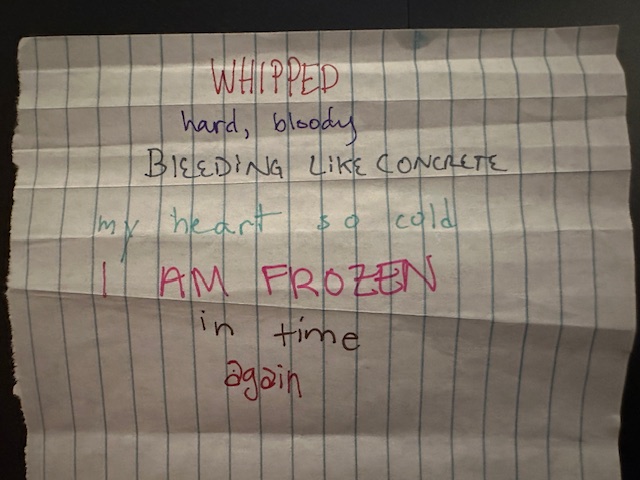 WHIPPED
hard, bloody
BLEEDING LIKE CONCRETE
my heart so cold
I AM FROZEN
in time
again